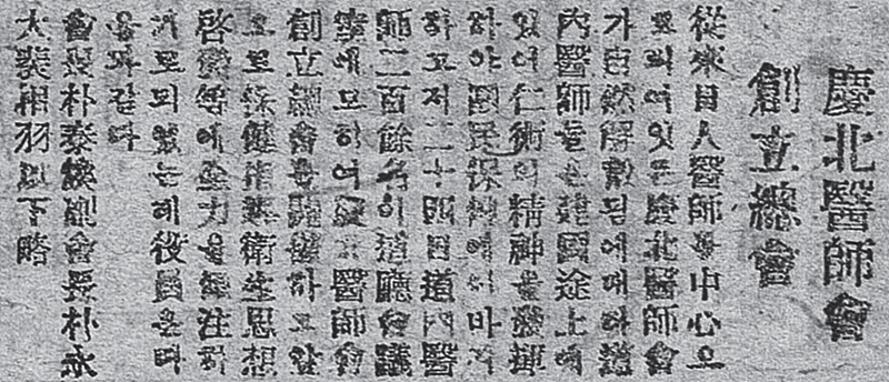 慶北醫師會
創立總會
從來日人醫師를中心으
로되여잇든慶北醫師會
가自然解散됨에따라道
內醫師들은建國途上에
잇어仁術의精神을發揮
하야國民保健에이바지
하고저二十四日道內醫
師二百餘名이道廳會議
室에모히여慶北醫師會
創立總會를開催하고압
으로保健指導衛生思想
啓蒙等에全力을傾注하
기로되엿는데役員은다
음과갓다
會長朴泰煥副會長朴永
大裵相羽以下略